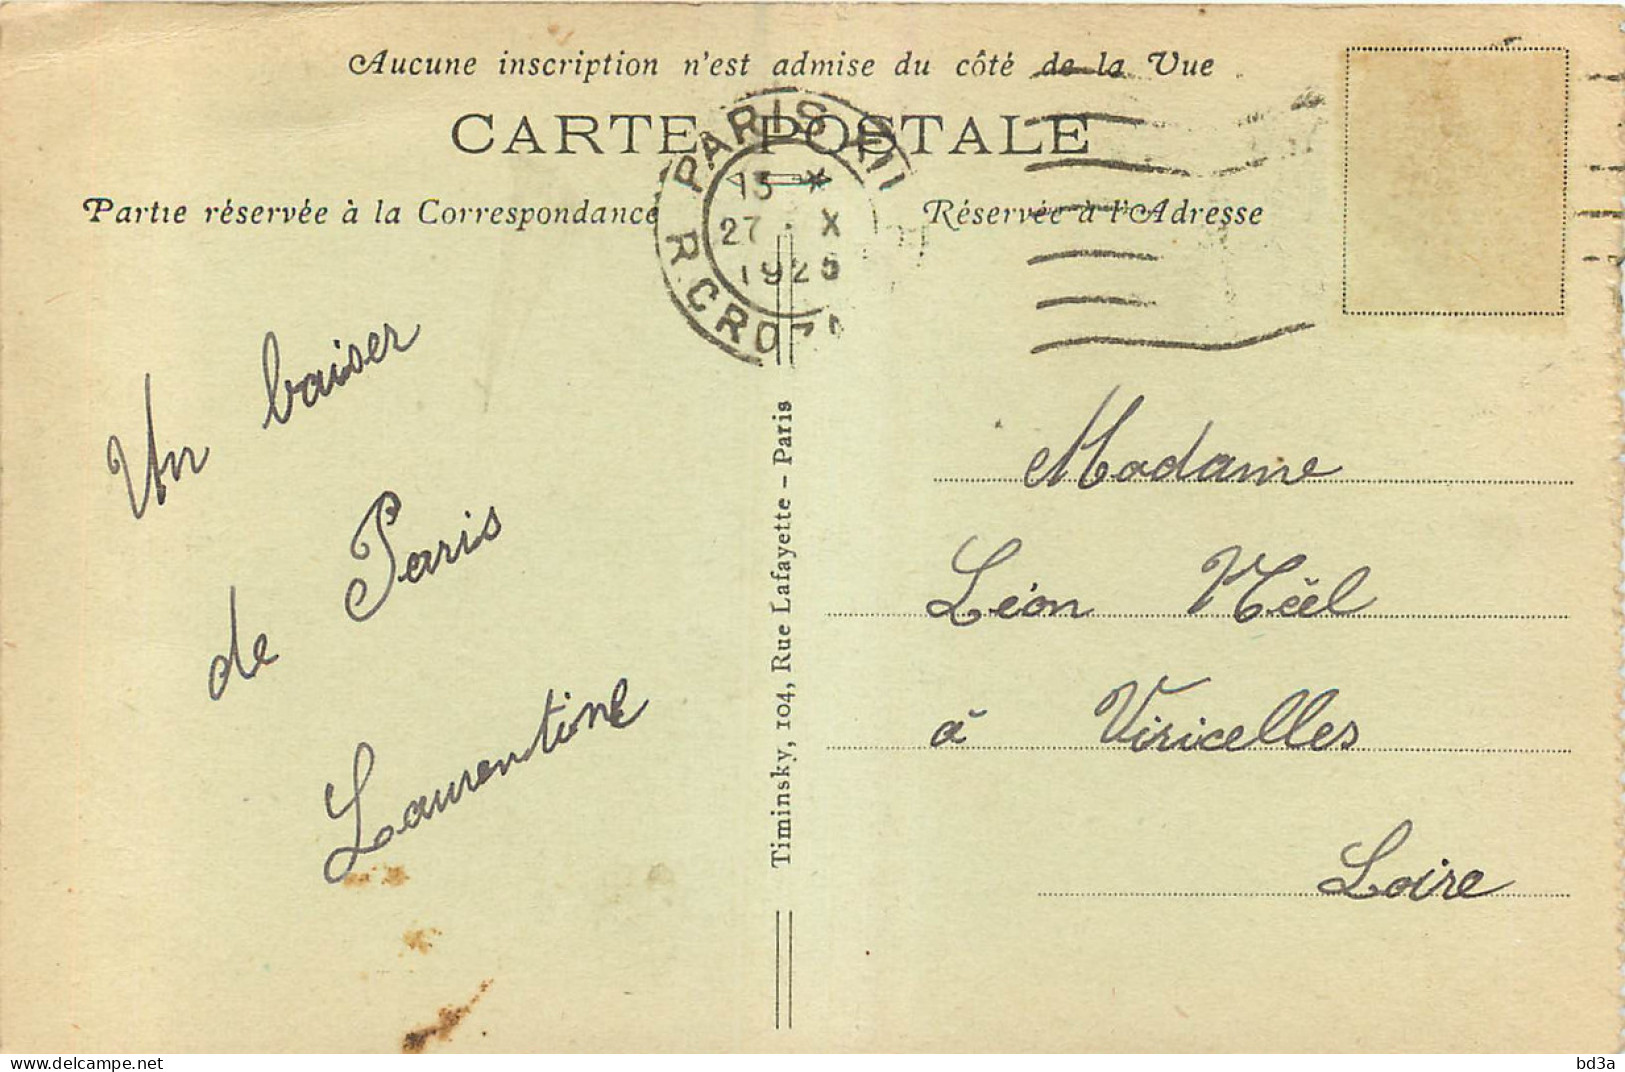 Aucune inscription n'est admise du côté de la Vue
CARTE POSTALE
Partie réservée à la Correspondance
Réservée à l'Adresse
PARIS
13 X
27 . X
1925
R. CROZA
Un baiser
de Paris
Laurentine
Timinsky, 104, Rue Lafayette - Paris
Madame
Léon Nöel
à Viricelles
Loire
www.delcampe.net
bd3a